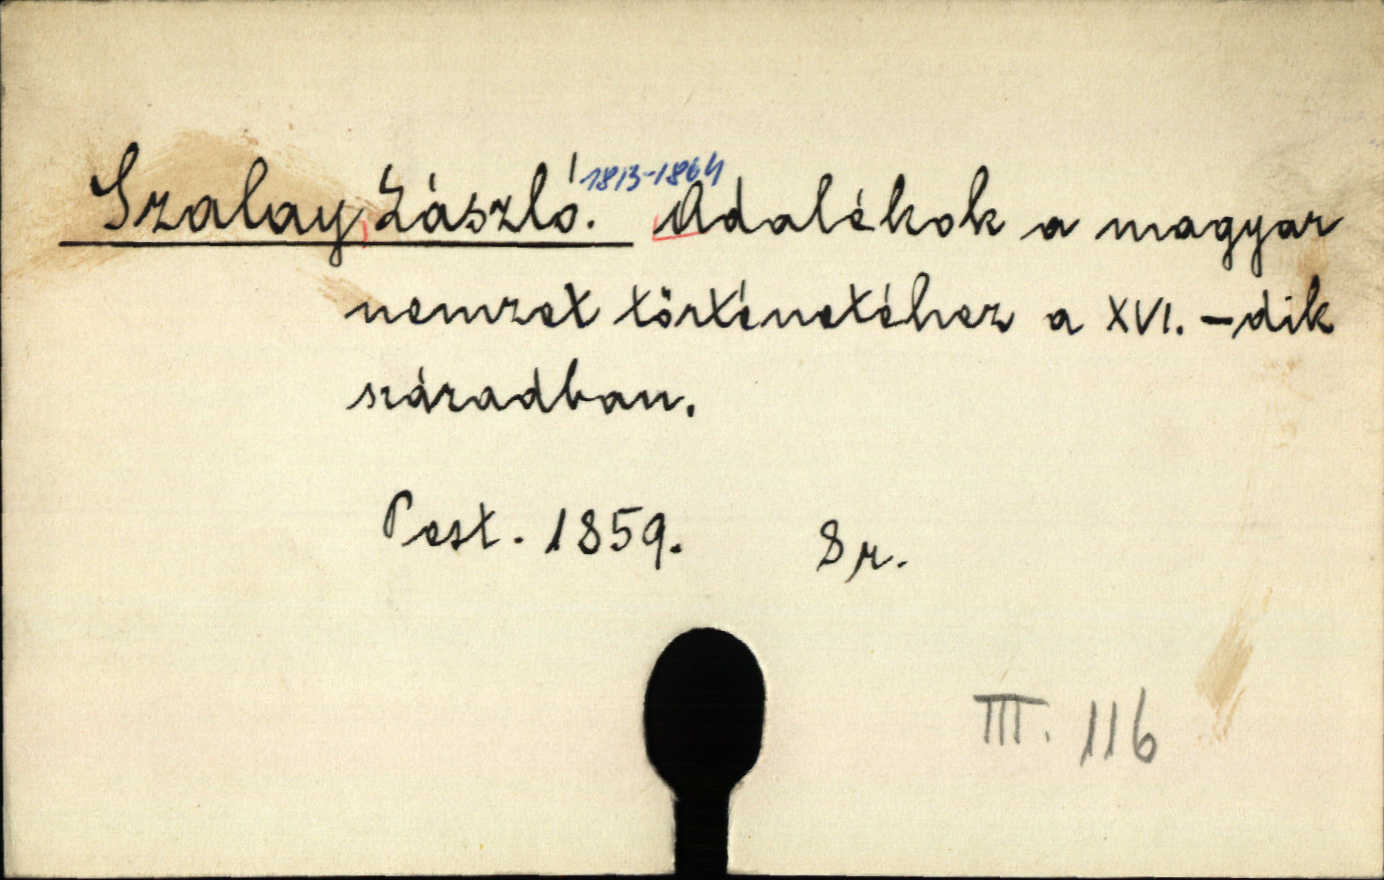 Szalay, László. 1813-1864 Adalékok a magyar
nemzet történetéhez a XVI. -dik
században.
Pest. 1859. 8 r.
III. 116